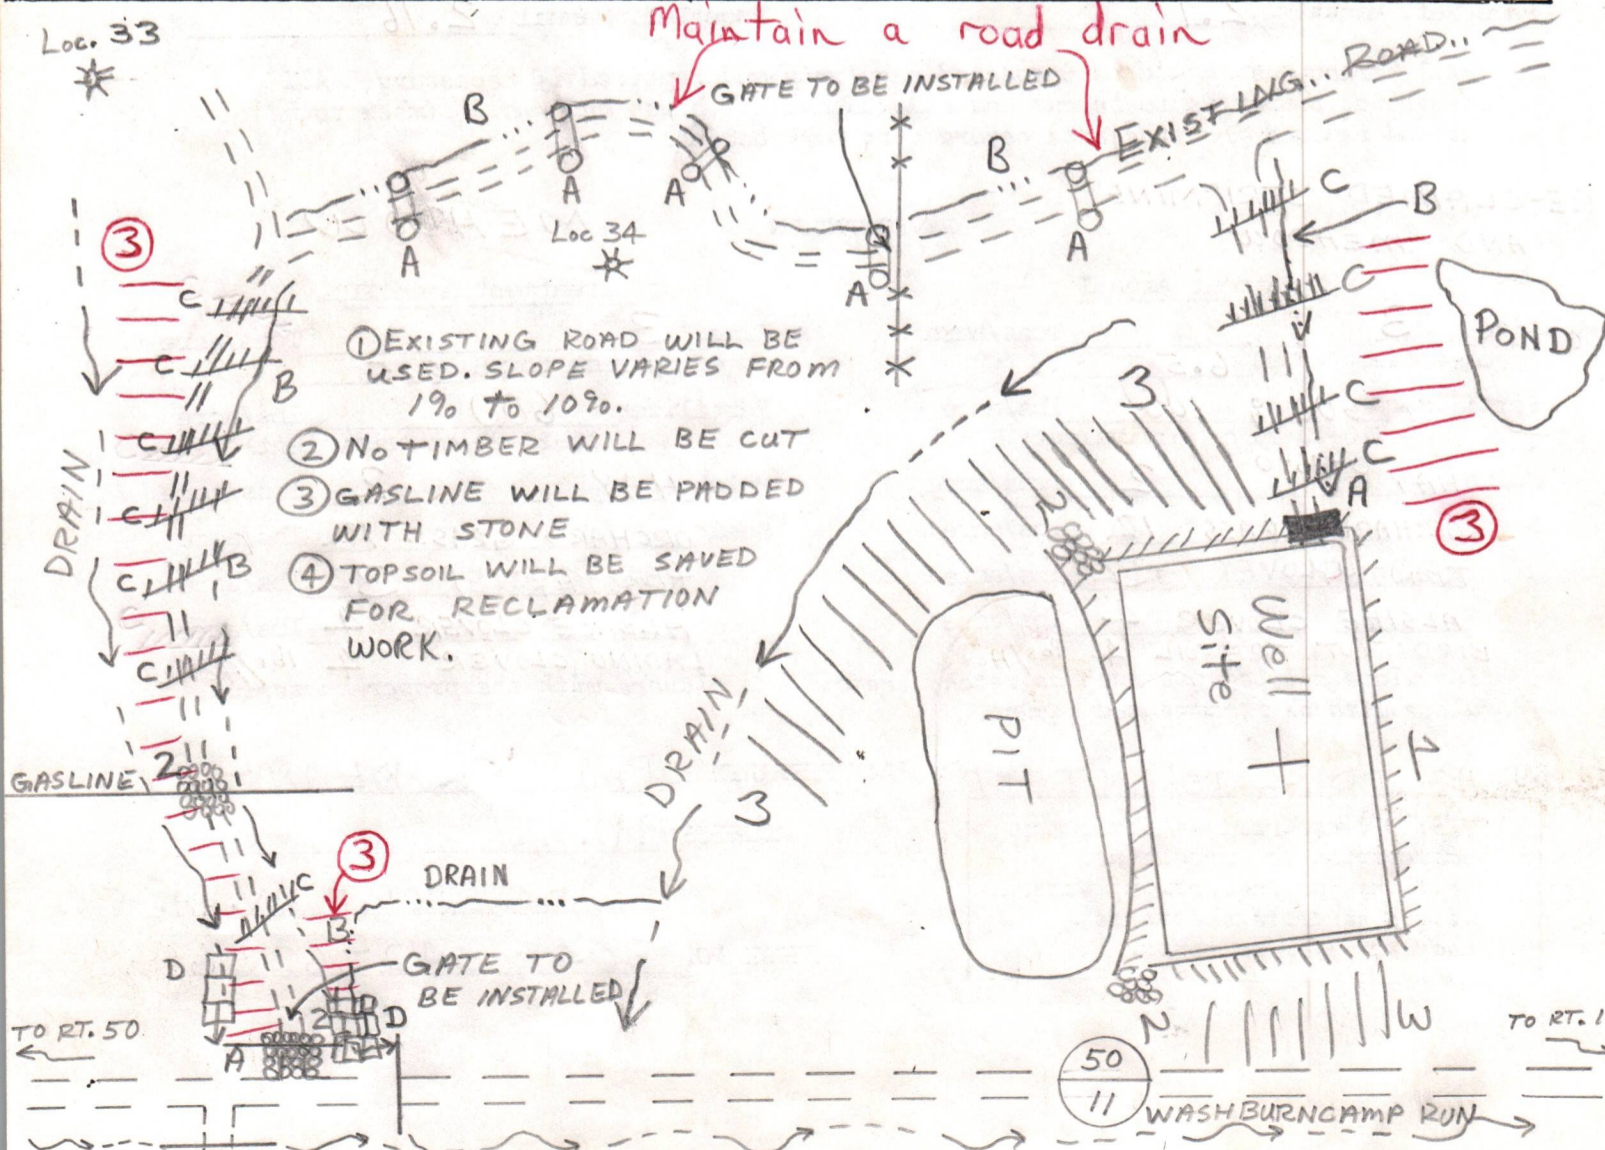 Maintain a road drain
Loc. 33
GATE TO BE INSTALLED
EXISTING.. ROAD..
B
A
A
A
Loc 34
A
B
A
C
B
C
C
C
A
3
POND
3
C
C
B
C
C
C
B
C
DRAIN
① EXISTING ROAD WILL BE
USED. SLOPE VARIES FROM
1% to 10%.
② No TIMBER WILL BE CUT
③ GASLINE WILL BE PADDED
WITH STONE
④ TOPSOIL WILL BE SAVED
FOR RECLAMATION
WORK.
3
2
Well
Site
PIT
1
DRAIN
3
2
GASLINE
3
C
DRAIN
B
D
GATE TO
BE INSTALLED
2
D
A
TO RT. 50
2
3
50
11
WASHBURNCAMP RUN
TO RT. 1